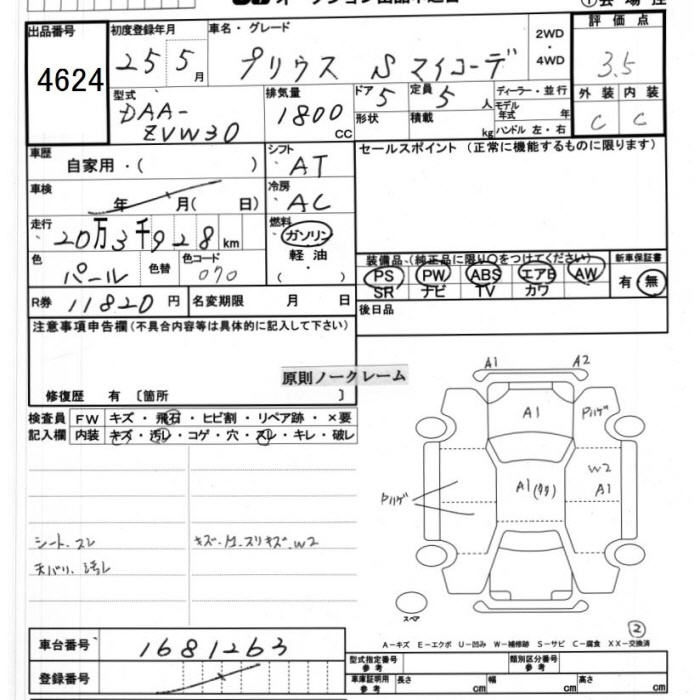 出品番号
4624
初度登録年月
25 5月
車名・グレード
プリウス Sマイコーデ
2WD
・
4WD
評価点
3.5
型式
DAA-
ZVW30
排気量
1800
CC
ドア
5
定員
5人
ディーラー・並行
モデル
年式 年
形状
積載
kg
ハンドル 左・右
外装 内装
C C
車歴
自家用・( )
シフト
AT
セールスポイント (正常に機能するものに限ります)
車検
年 月( 日)
冷房
AC
走行
20万3千928km
燃料
ガソリン
軽油
( ・ )
色
パール
色替
色コード
070
装備品 (純正品に限り○をつけてください)
新車保証書
PS PW ABS エアB AW
有・無
SR ナビ TV カワ
R券 11820円
名変期限 月 日
後日品
注意事項申告欄(不具合内容等は具体的に記入して下さい)
原則ノークレーム
修復歴 有 〔箇所 〕
検査員
記入欄
FW キズ・飛石・ヒビ割・リペア跡・×要
内装 キズ・汚レ・コゲ・穴・スレ・キレ・破レ
シート.スレ
天バリ.汚レ
A1 A2
A1
Pハゲ
W2
A1
A1
Pハゲ
スペア
②
A-キズ E-エクボ U-凹み W-補修跡 S-サビ C-腐食 XX-交換済
車台番号
1681263
登録番号
型式指定番号
参考
類別区分番号
参考
車庫証明用
参考
長さ cm
幅 cm
高さ cm